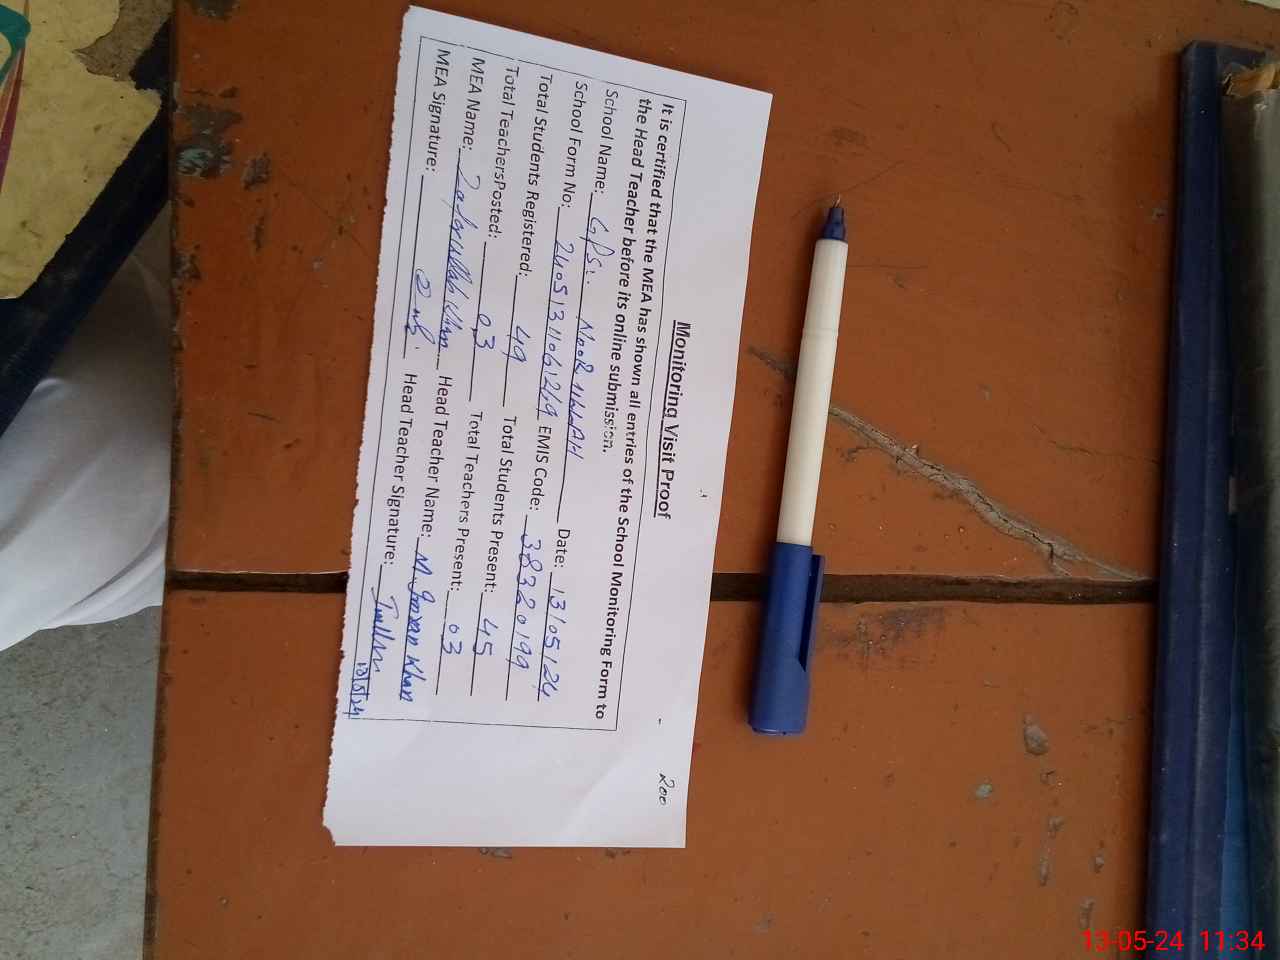 200
Monitoring Visit Proof
It is certified that the MEA has shown all entries of the School Monitoring Form to
the Head Teacher before its online submission.
School Name: GPS: NOOR Date: 13/05/24
School Form No: EMIS Code: 38320199
Total Students Registered: 49 Total Students Present: 45
Total TeachersPosted: 03 Total Teachers Present: 03
MEA Name: Zafarullah Khan Head Teacher Name: M. Imran Khan
MEA Signature: Head Teacher Signature:
13/5/24
13-05-24 11:34